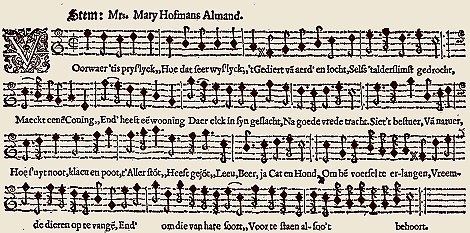 Stem: Mrs. Mary Hofmans Almand.
VOorwaer 'tis pryslyck, Hoe dat seer wyslyck, 't Gediert vã aerd' en locht, Selfs 't alderslimst gedrocht,
Maeckt eenẽ Coning, End' heeft eẽ wooning Daer elck in syn geslacht, Na goede vrede tracht. Siet't bestier, Vã nauver,
Hoe suyt noot, klaeu en poot, t'Aller stõt, Heeft gejõt, Leeu, Beer, ja Cat en Hond, Om bẽ voersel te erlangen, Vreem-
de dieren op te vangẽ, End' om die van hare soort, Voor te staen al soo't behoort.